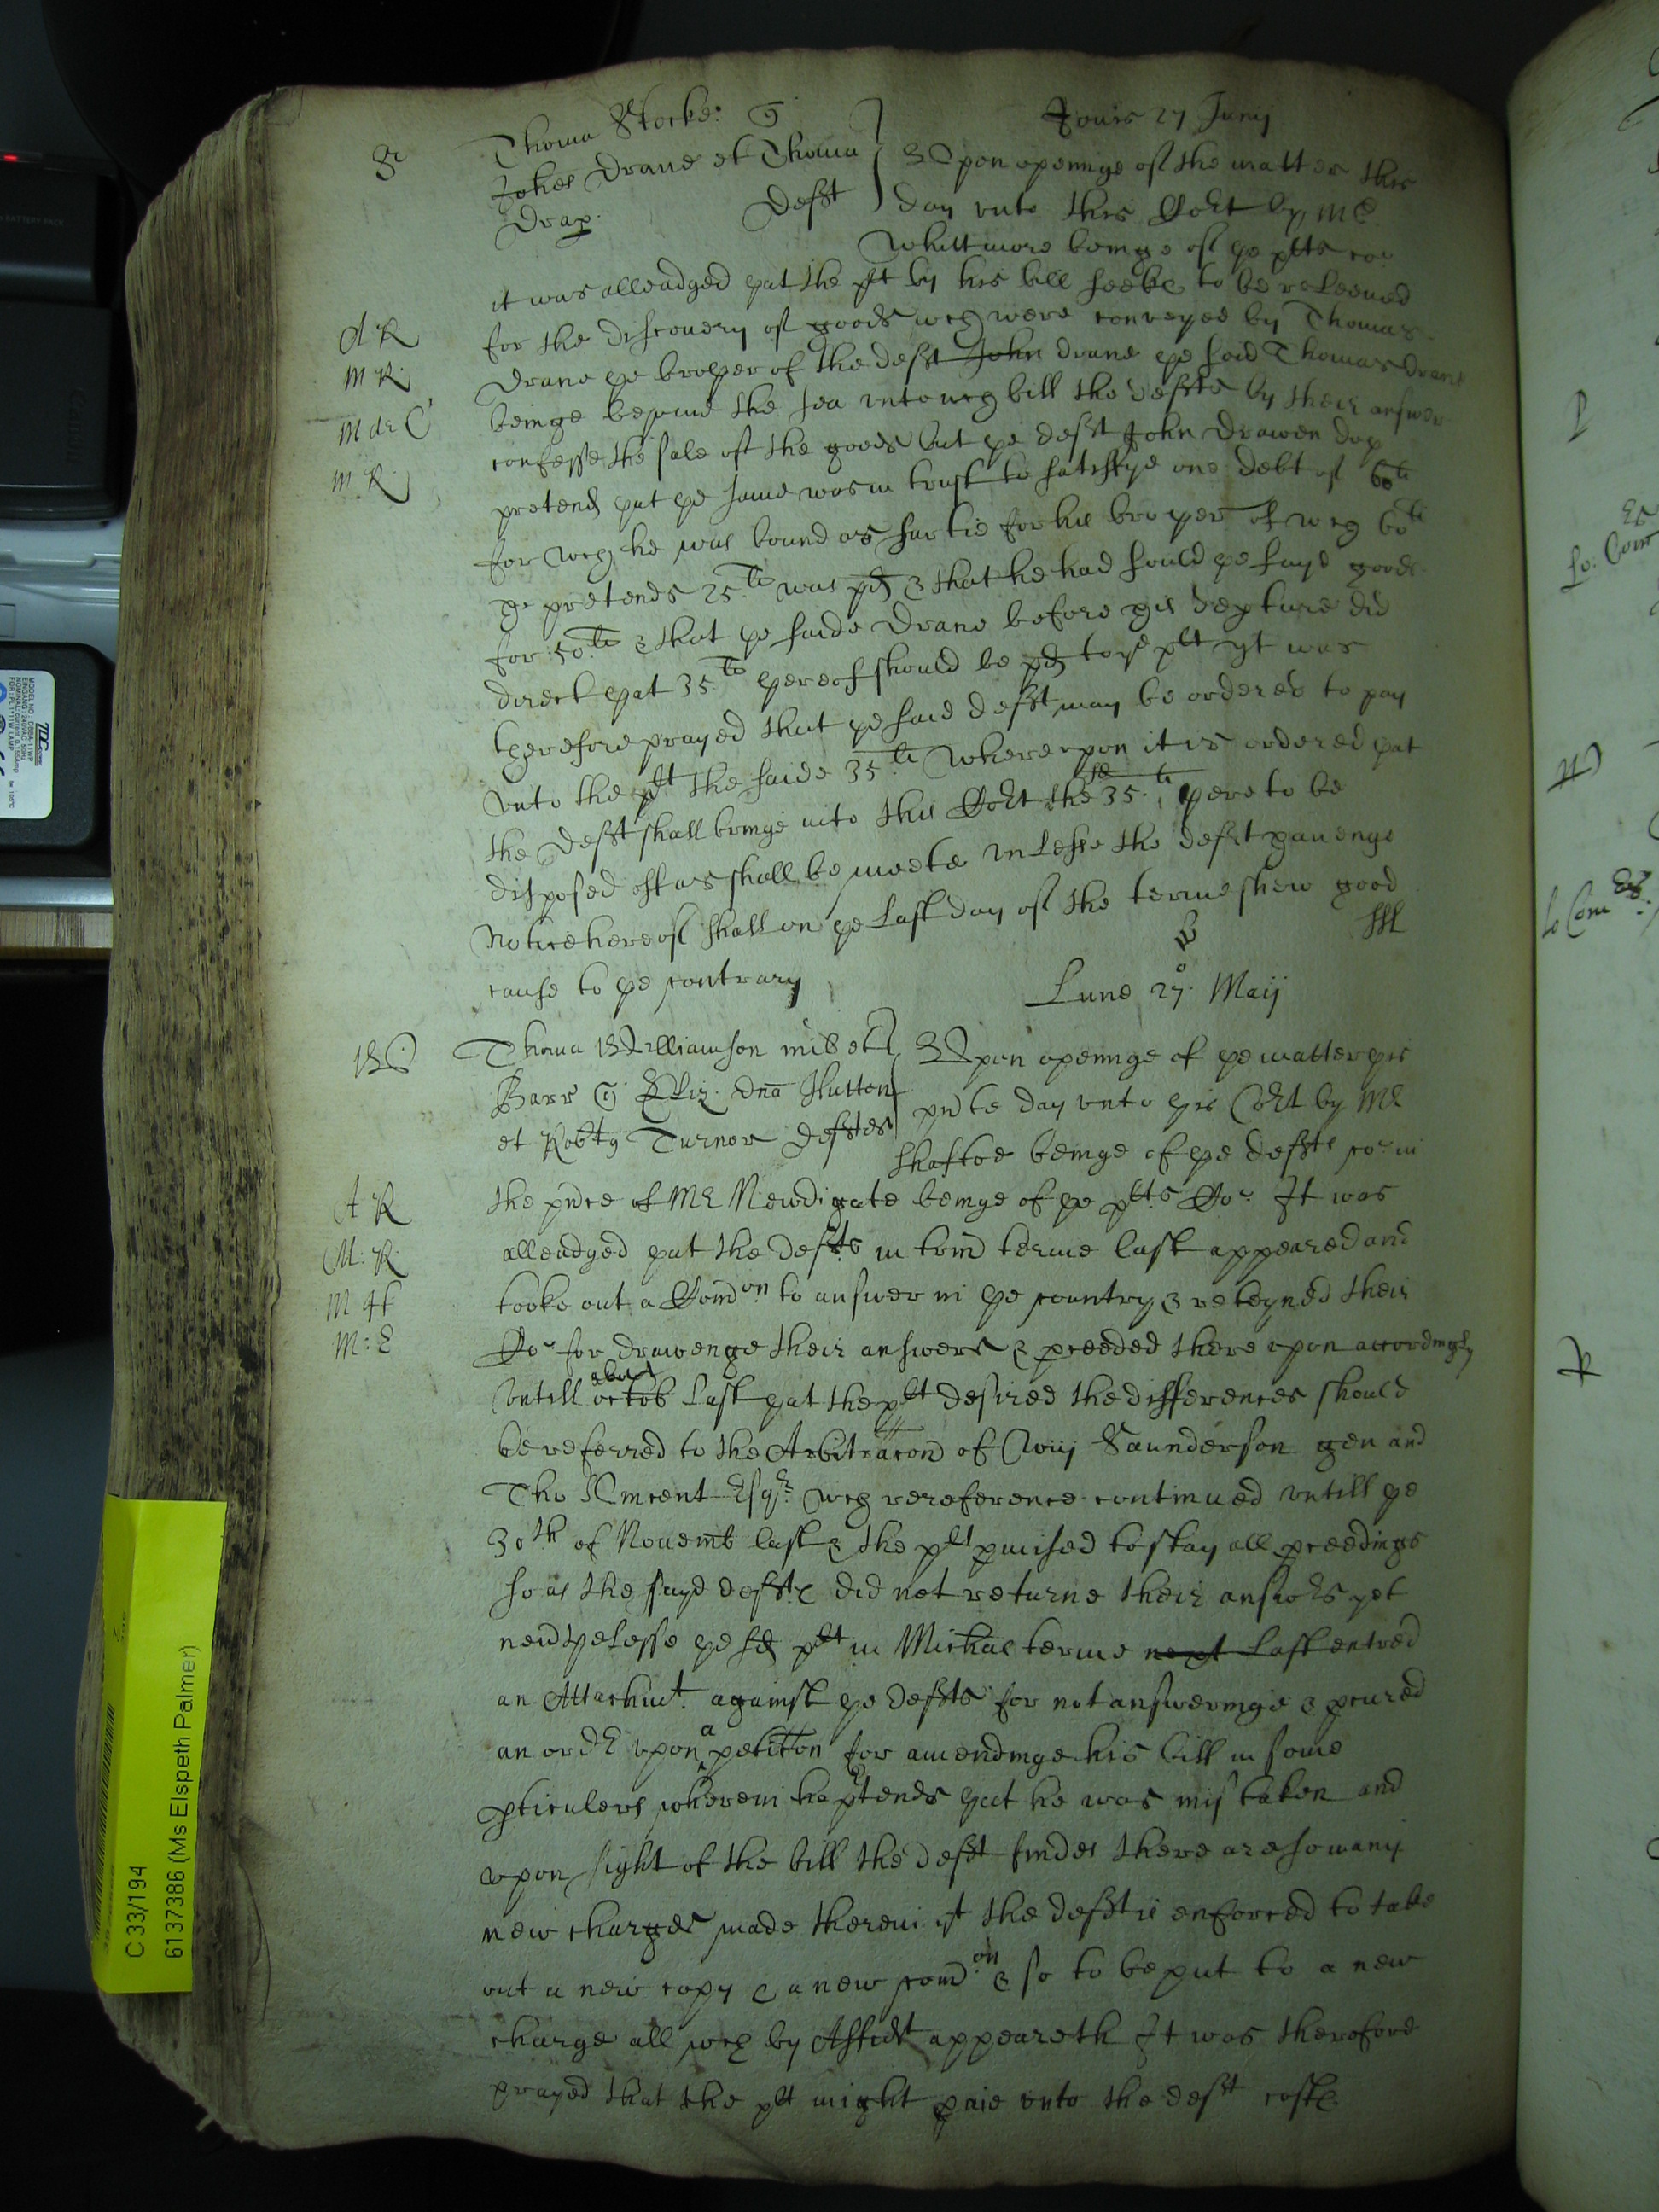 Jouis 27 Junij
S
Thoma Stocke: q
Johes Drane et Thoma
Drap. Defᵗ
Vpon openinge of the matter this
day vnto this Coᵗ by Mr
Whittmore beinge of ye plts co
it was alleadged yat the plt by his bill seeke to be releeued
for the discouery of goods wch were conveyed by Thomas
Drane ye broyer of the deft John drane ye said Thomas Drane
beinge beyond the sea vnto wch bill the defts by their answer
confesse the sale of the goods but ye deft John Drawen doy
pretend yat ye same was in trust to satisfye one debt of 60li
for wch he was bound as surtie for his broyer of wch 60li
he pretends 25li was pd & that he had sould ye sayd goods
for 50li & that ye saide Drane before his depture did
direct yat 35li yereof should be pd to ye plt yt was
therefore prayed that ye said deft may be ordered to pay
vnto the plt the saide 35li Whereupon it is ordered yat
the Deft shall bringe into this Court the sd 35li yere to be
disposed of as shall be meete vnlesse the deft haueinge
notice hereof shall on ye last day of the terme shew good
cause to ye contrary
A R
M R
M de C
m R
Lune 27o Maij
W
Thoma Williamson mil et
Barr q Eliz dna Hutton
et Robtq Turnor Deftes
Vpon openinge of ye matter yis
pnte day vnto yis Court by Mr
Shaftoe beinge of ye defts co in
the pnce of Mr Newdigate beinge of ye plts Co It was
alleadged yat the Defts in trin terme last appeared and
tooke out a Comdon to answer in ye country & reteyned their
Co for draweinge their answers & pceeded there vpon accordingly
vntill about octob last yat the plt desired the differences should
be referred to the Arbitracon of Wm Saunderson gen and
Tho Vincent Esqr wch rereference continued vntill ye
30th of Nouemb last & the plt pmised to stay all pceedings
so as the sayd defts did not returne their answrs yet
neverthelesse ye sd plt in Michae terme next last entred
an Attachmt against ye defts for not answeringe & pcured
an ordr vpon a petition for amendinge his bill in some
pticulers wherein he ptends yat he was mistaken and
vpon sight of the bill the deft findes there are so many
new charges made therein yt the deft is enforced to take
out a new copy & a new comdon & so to be put to a new
charge all wch by Affidt appeareth It was therefore
prayed that the plt might paie vnto the deft costs
A R
M: R
M: E
C 33/194
6137386 (Ms Elspeth Palmer)